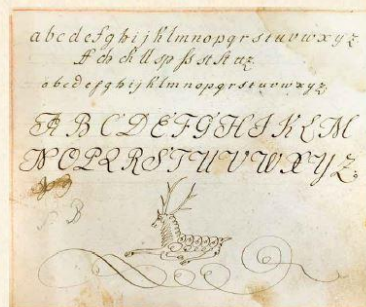 a b c d e f g h i j k l m n o p q r s t u v w x y z
ff ch ck ll sp ss st st tz
a b c d e f g h i j k l m n o p q r s t u v w x y z
A B C D E F G H I K L M
N O P Q R S T U V W X Y Z.
B